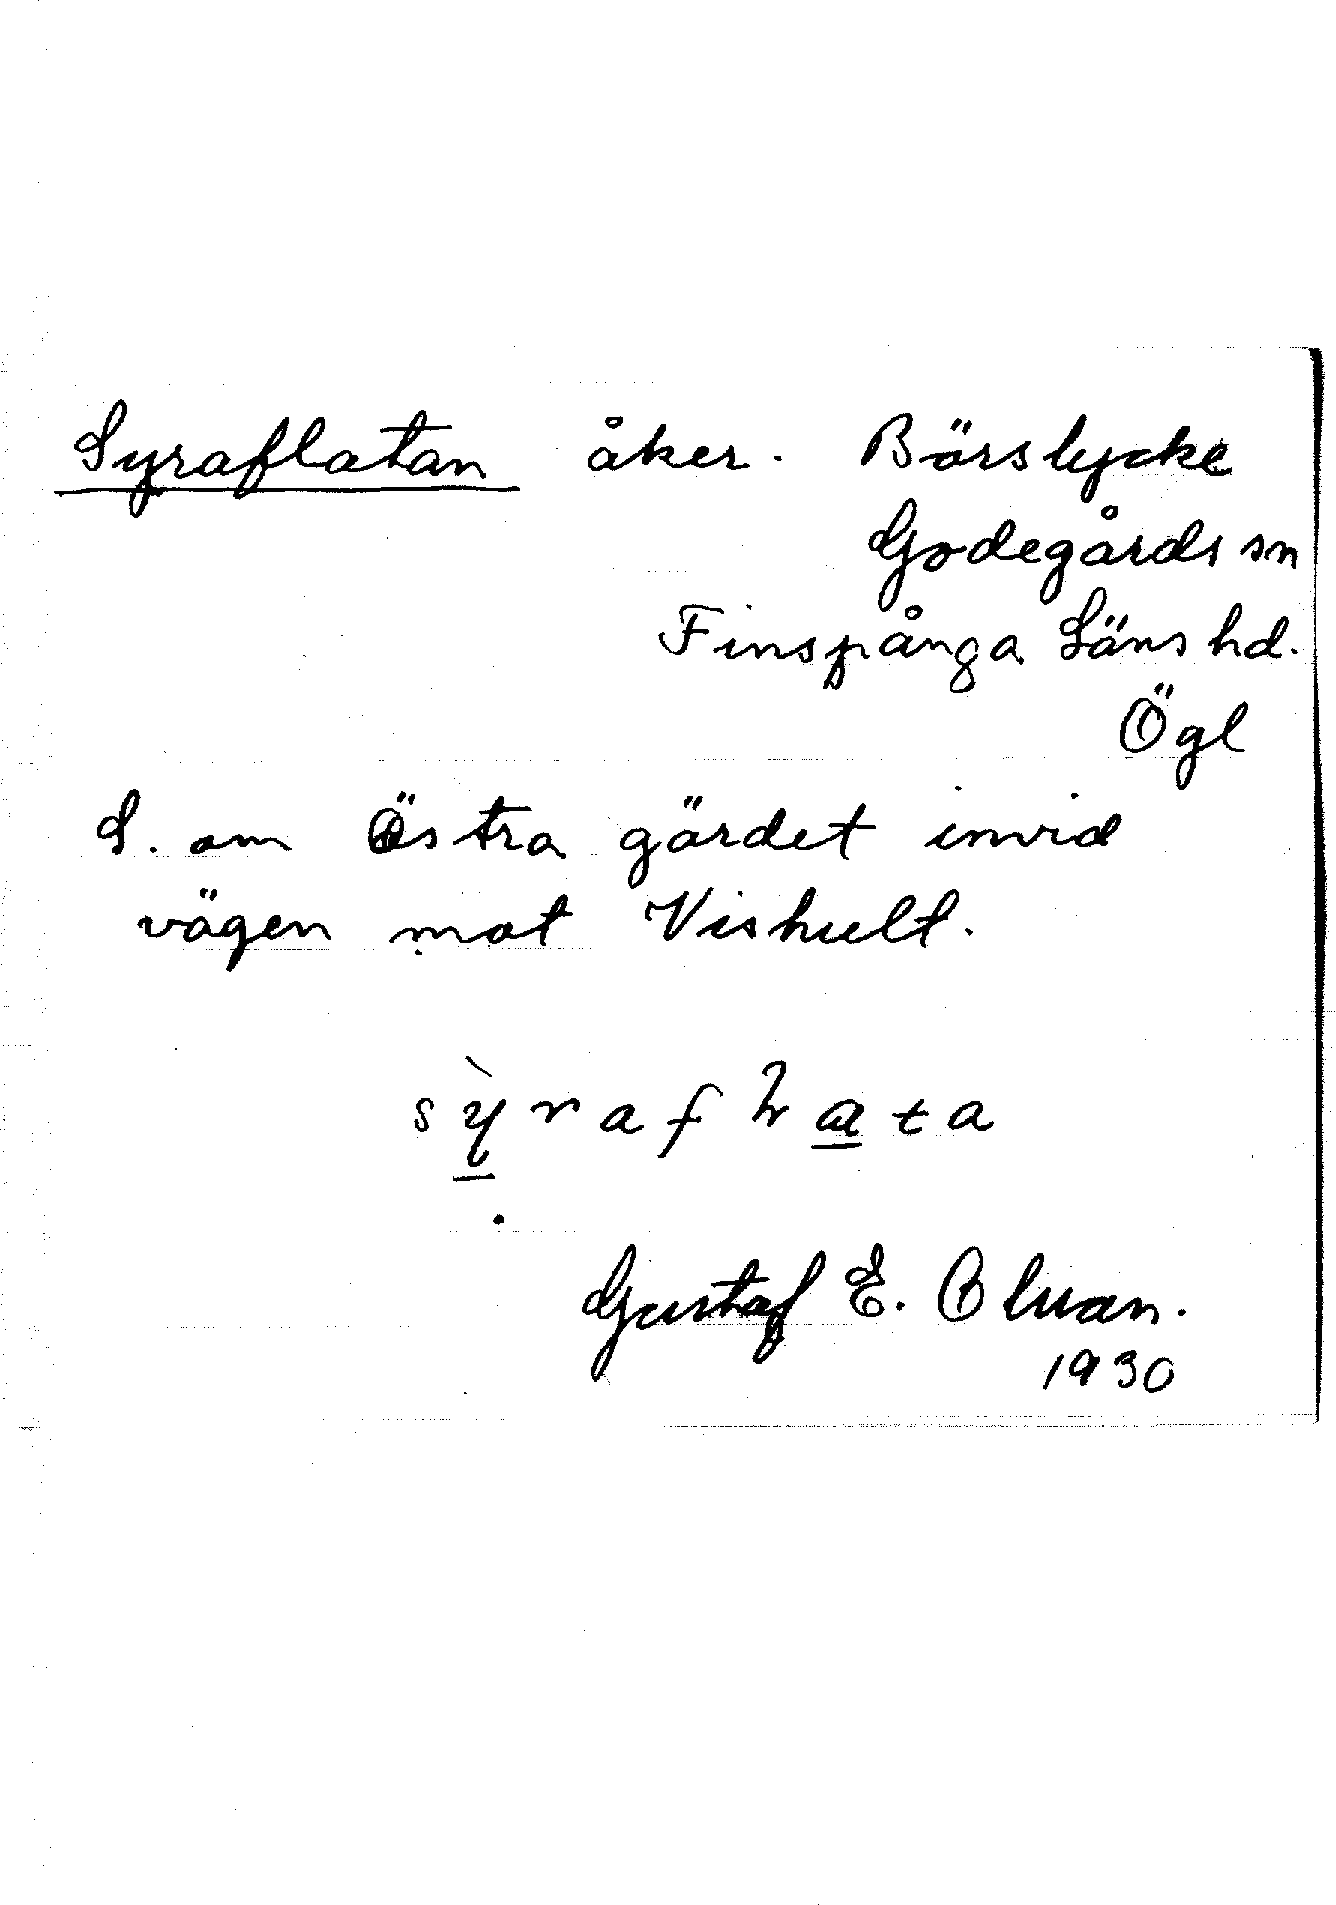 Syraflatan åker. Börslycke
Godegårds sn
Finspånga Läns hd.
Ögl
S. om Östra gärdet invid
vägen mot Vishult.
sỳrafɫata
Gustaf E. Oluan.
1930